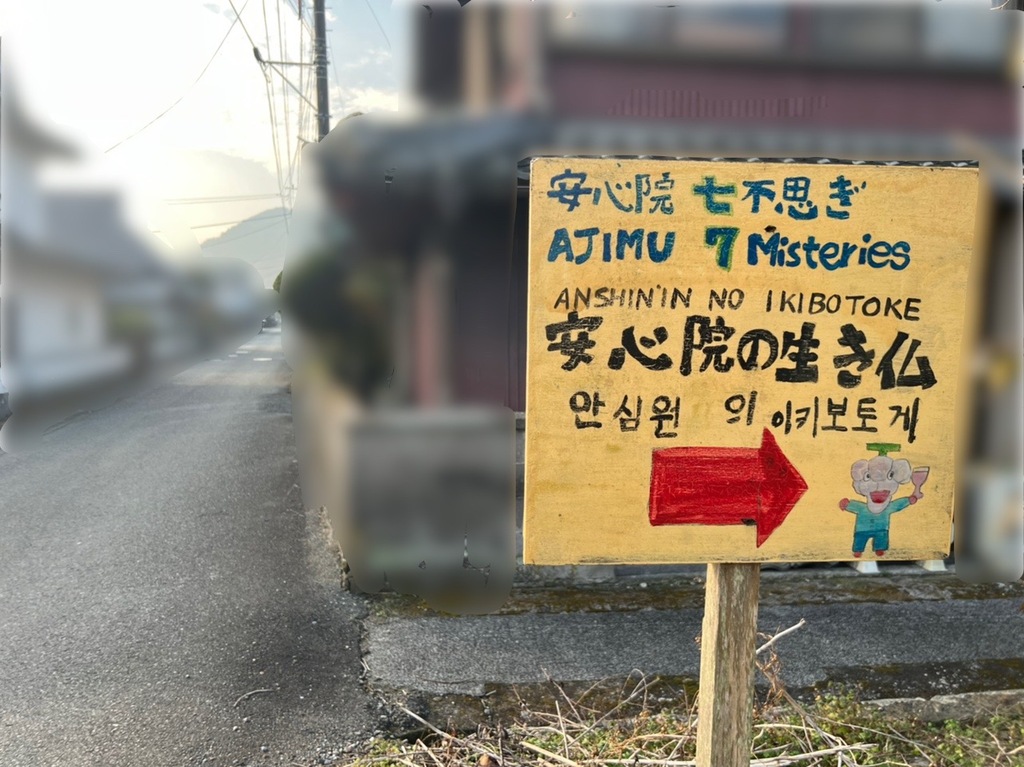 安心院 七不思ぎ
AJIMU 7 Misteries
ANSHIN'IN NO IKIBOTOKE
安心院の生き仏
안심원 의 이키보토게